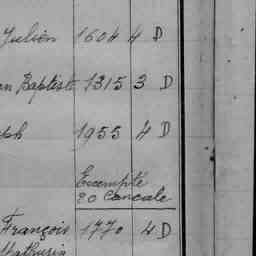 Julien 1604 4 D
an Baptiste 1315 3 D
ph 1955 4 D
Exempté
20 Cancale
François 1770 4 D
Mathurin